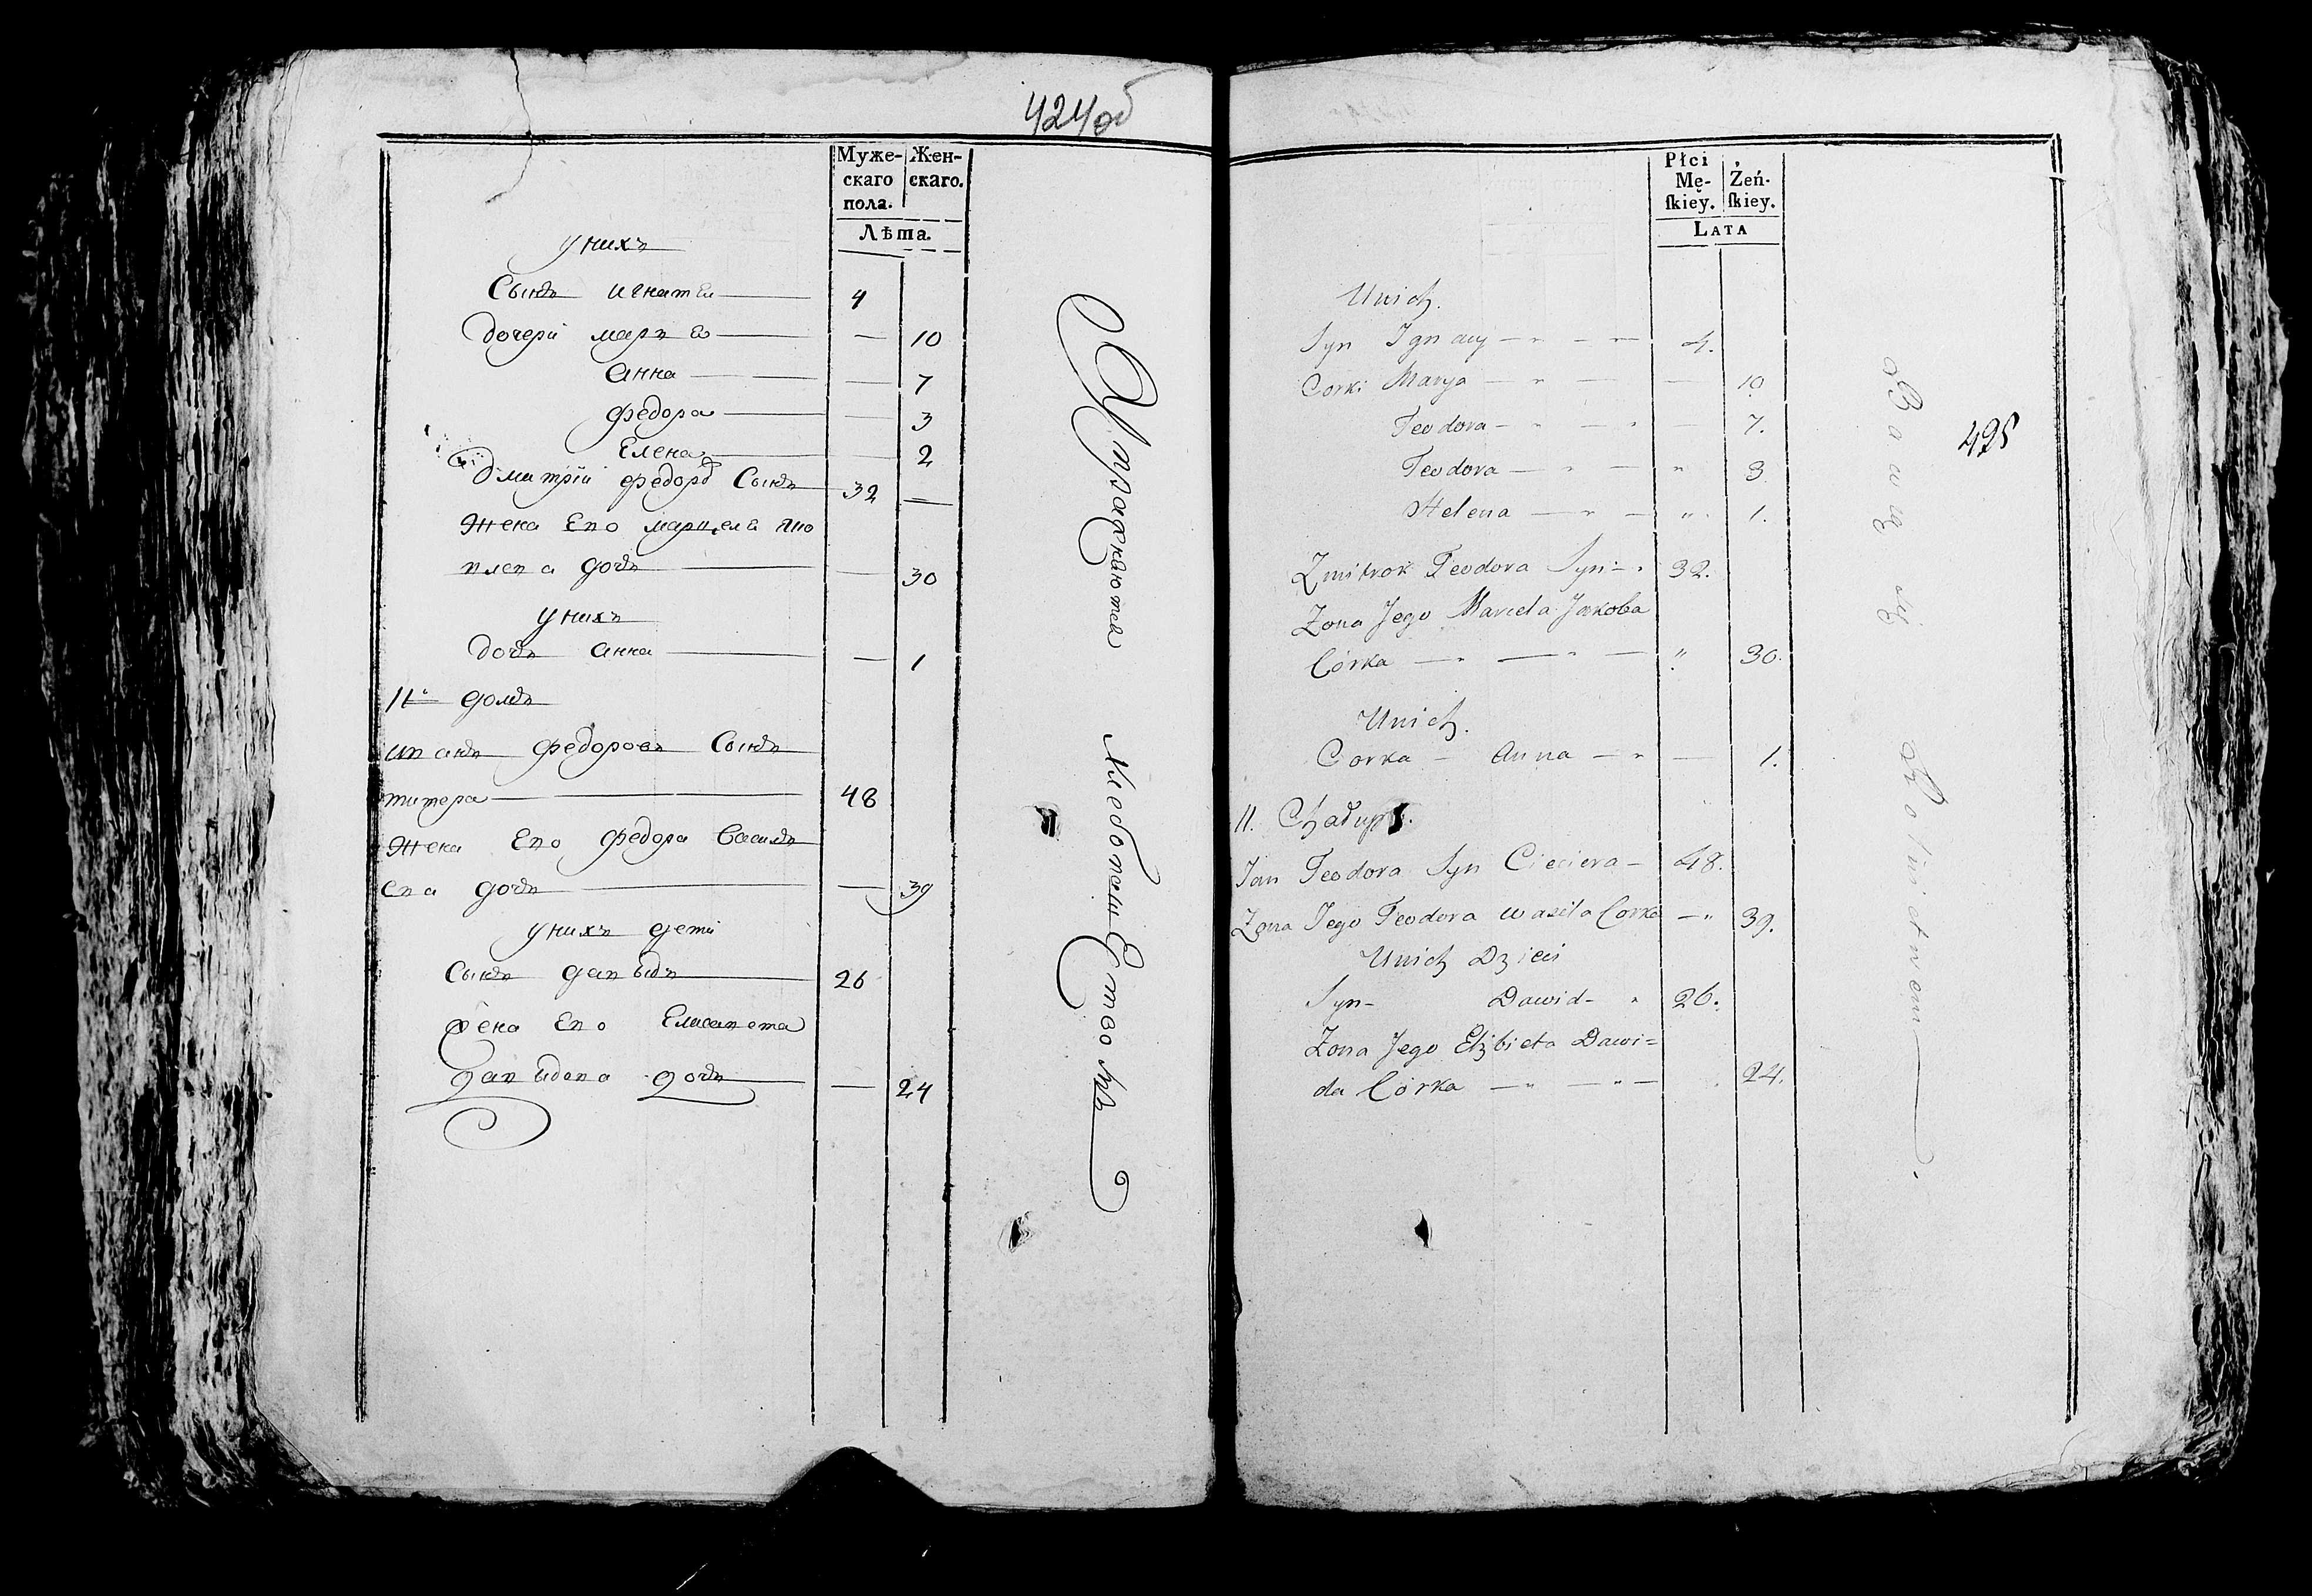 424об
Муже- Жен-
скаго скаго.
пола.
Лѣта.
унихъ
Сынъ игнатеи 4
дочери марья — 10
анна — 7
федора — 3
Елена — 2
дмитрiи федоръ Сынъ 32 —
жена Его марцела яко
влева дочь — 30
унихъ
дочь анна — 1
11. домъ
иванъ федоровъ Сынъ
титера 48
жена Его федора Василь
ева дочь — 39
унихъ дети
Сынъ давыдъ 26
жена Его Елисавета
давыдова дочь — 24
Упражняются хлебопашЕством
Płci
Mę- Żeń-
ſkiey. ſkiey.
LATA
495
Unich.
Syn Ignacy 4.
Corki Marya — 10
Teodora — 7.
Teodora " 3.
Helena " 1.
Zmitrok Teodora Syn 32.
Zona Jego Marcela Jakoba
Córka " 30.
Unich.
Corka Anna — 1.
11. Chałupa.
Jan Teodora Syn Cieciera 48.
Zona Jego Teodora wasila Corka — 39.
Unich Dzieci
Syn Dawid 26.
Zona Jego Elżbieta Dawi=
da Córka 24.
Bawią się Rolnictwem